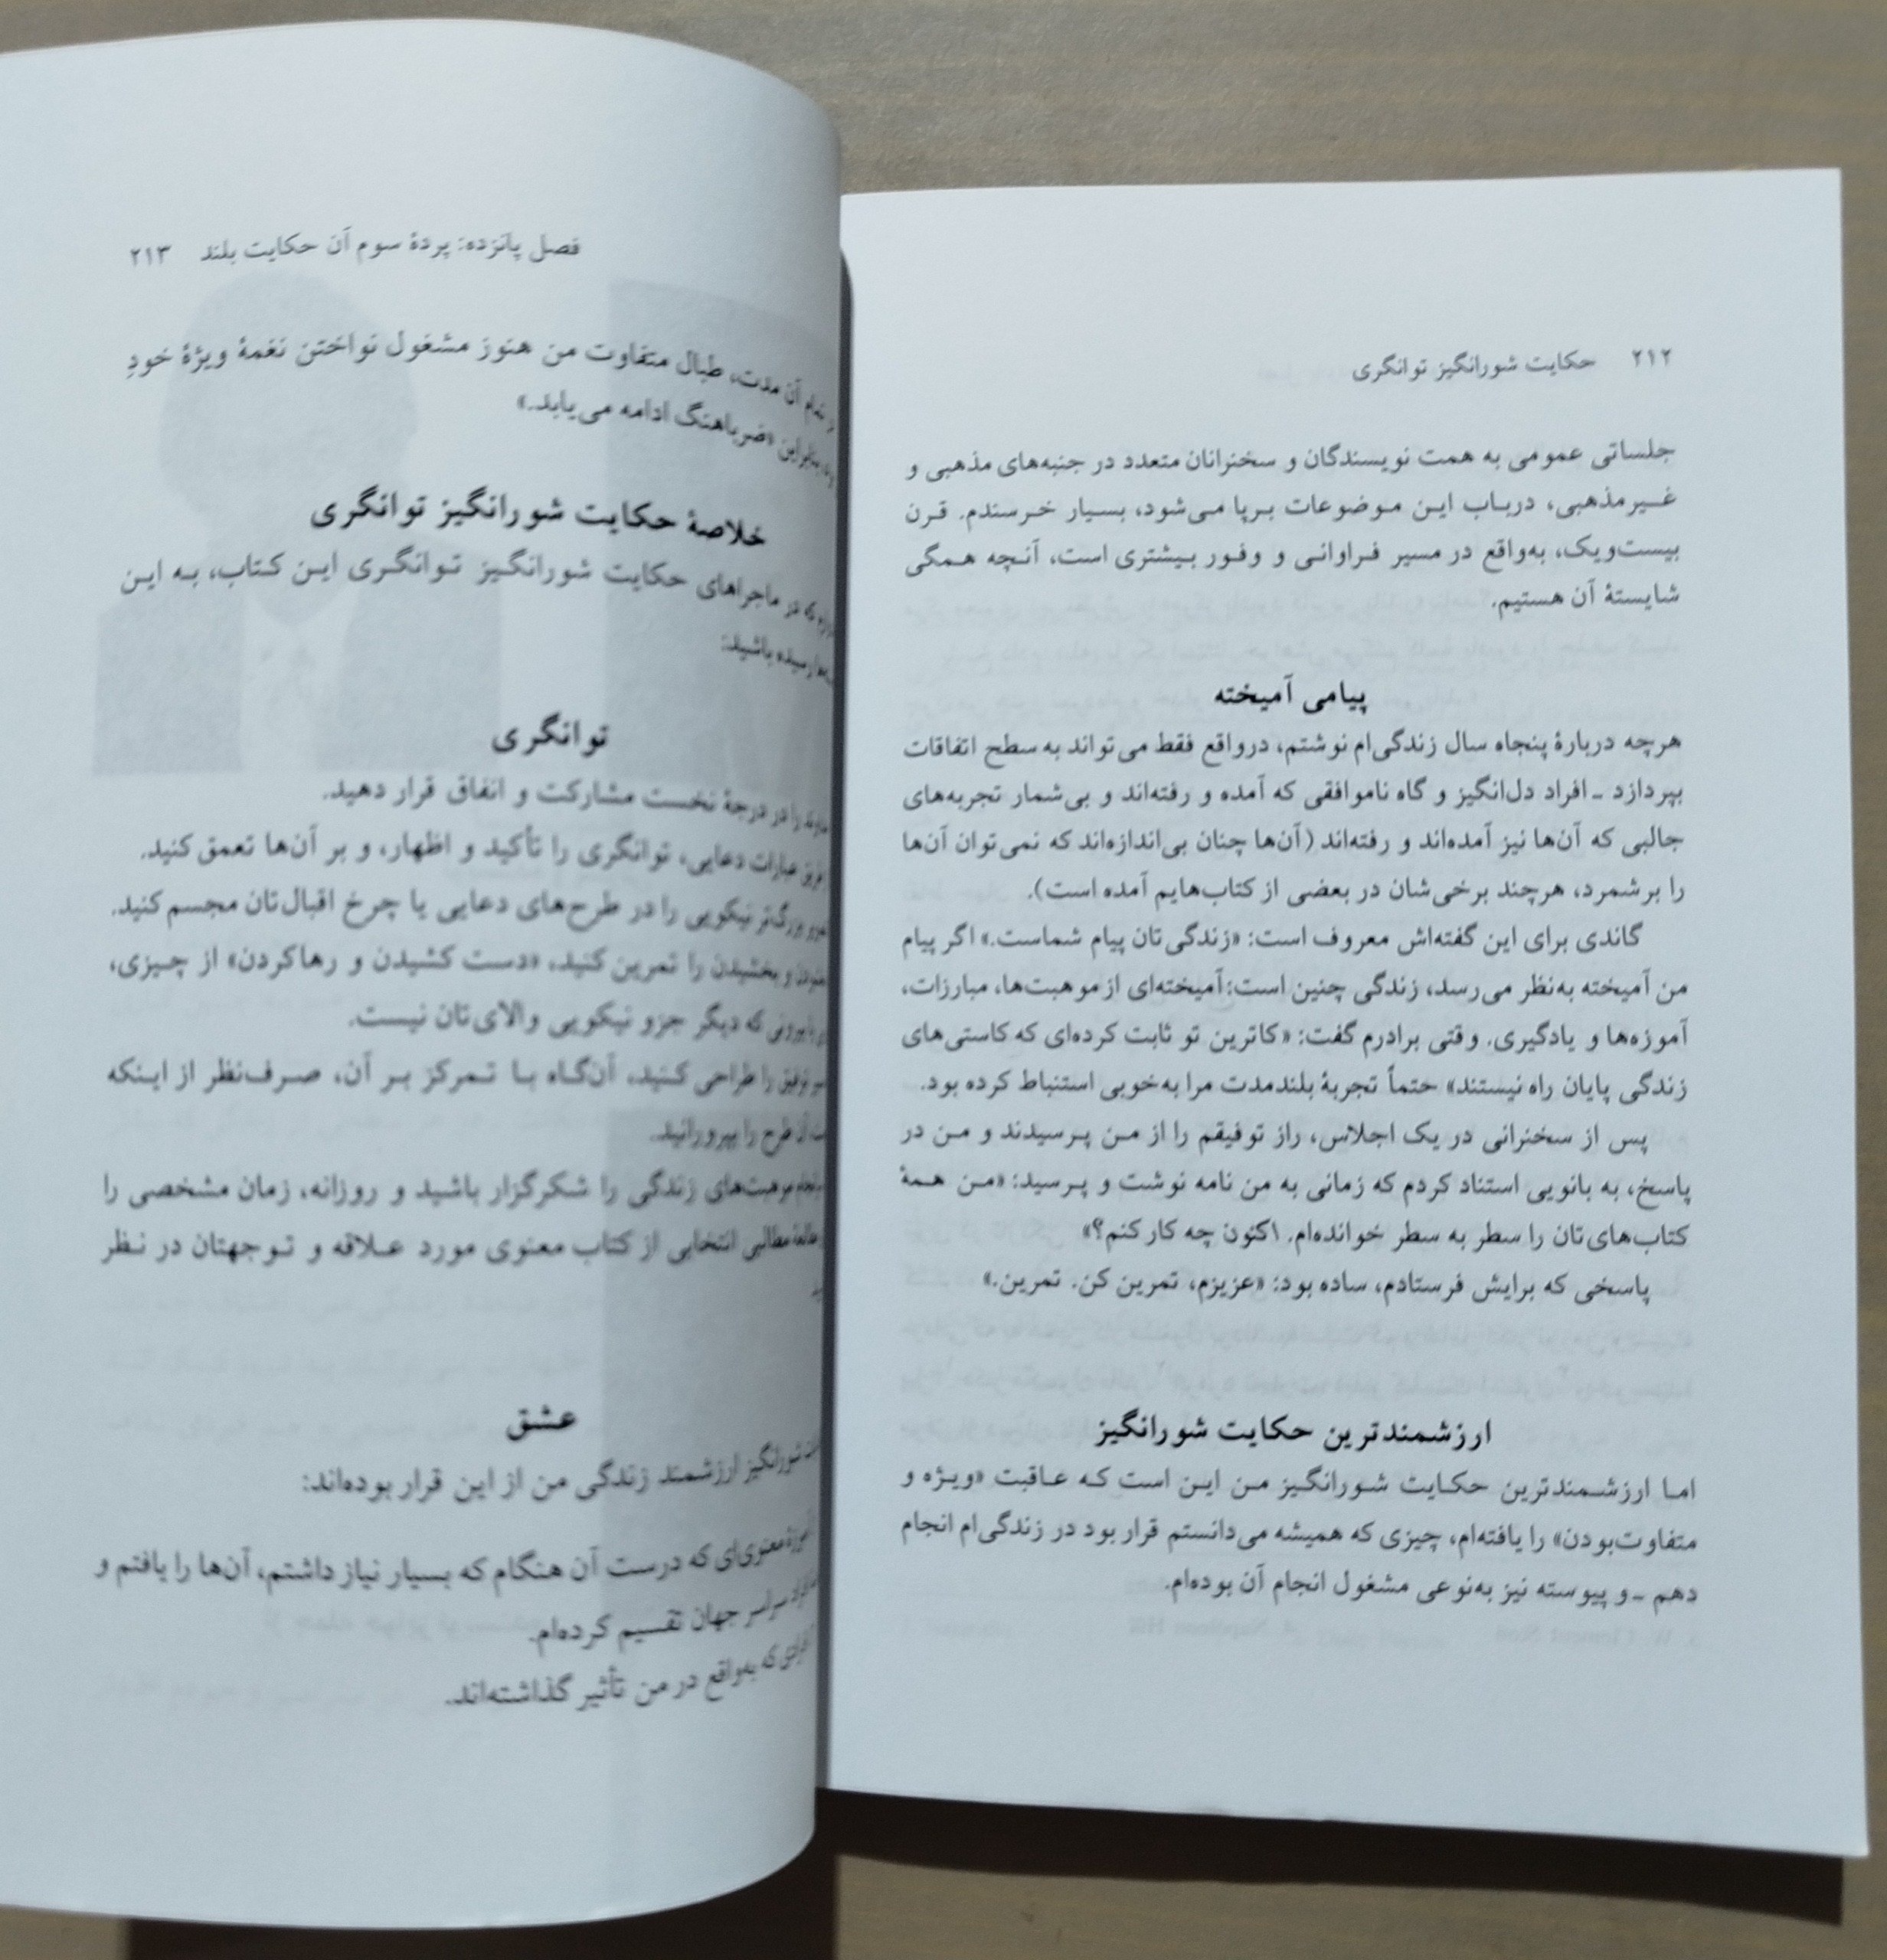 ۲۱۲ حکایت شورانگیز توانگری
جلساتی عمومی به همت نویسندگان و سخنرانان متعدد در جنبه‌های مذهبی و
غیرمذهبی، درباب این موضوعات برپا می‌شود، بسیار خرسندم. قرن
بیست‌ویک، به‌واقع در مسیر فراوانی و وفور بیشتری است، آنچه همگی
شایستهٔ آن هستیم.
پیامی آمیخته
هرچه دربارهٔ پنجاه سال زندگی‌ام نوشتم، درواقع فقط می‌تواند به سطح اتفاقات
بپردازد ـ افراد دل‌انگیز و گاه ناموافقی که آمده و رفته‌اند و بی‌شمار تجربه‌های
جالبی که آن‌ها نیز آمده‌اند و رفته‌اند (آن‌ها چنان بی‌اندازه‌اند که نمی‌توان آن‌ها
را برشمرد، هرچند برخی‌شان در بعضی از کتاب‌هایم آمده است).
گاندی برای این گفته‌اش معروف است: «زندگی‌تان پیام شماست.» اگر پیام
من آمیخته به‌نظر می‌رسد، زندگی چنین است: آمیخته‌ای از موهبت‌ها، مبارزات،
آموزه‌ها و یادگیری. وقتی برادرم گفت: «کاترین تو ثابت کرده‌ای که کاستی‌های
زندگی پایان راه نیستند» حتماً تجربهٔ بلندمدت مرا به‌خوبی استنباط کرده بود.
پس از سخنرانی در یک اجلاس، راز توفیقم را از من پرسیدند و من در
پاسخ، به بانویی استناد کردم که زمانی به من نامه نوشت و پرسید: «من همهٔ
کتاب‌های‌تان را سطر به سطر خوانده‌ام. اکنون چه کار کنم؟»
پاسخی که برایش فرستادم، ساده بود: «عزیزم، تمرین کن. تمرین.»
ارزشمندترین حکایت شورانگیز
اما ارزشمندترین حکایت شورانگیز من این است که عاقبت «ویژه و
متفاوت‌بودن» را یافته‌ام، چیزی که همیشه می‌دانستم قرار بود در زندگی‌ام انجام
دهم ـ و پیوسته نیز به‌نوعی مشغول انجام آن بوده‌ام.
فصل پانزده: پردهٔ سوم آن حکایت بلند ۲۱۳
تمام آن مدت، طبال متفاوت من هنوز مشغول نواختن نغمهٔ ویژهٔ خودِ
بنابراین «ضرباهنگ ادامه می‌یابد.»
خلاصهٔ حکایت شورانگیز توانگری
که در ماجراهای حکایت شورانگیز توانگری این کتاب، به این
رسیده باشید:
توانگری
را در درجهٔ نخست مشارکت و انفاق قرار دهید.
عبارات دعایی، توانگری را تأکید و اظهار، و بر آن‌ها تعمق کنید.
بزرگ‌تر نیکویی را در طرح‌های دعایی یا چرخ اقبال‌تان مجسم کنید.
و بخشیدن را تمرین کنید، «دست کشیدن و رهاکردن» از چیزی،
بیرونی که دیگر جزو نیکویی والای‌تان نیست.
توفیق را طراحی کنید. آن‌گاه با تمرکز بر آن، صرف‌نظر از اینکه
آن طرح را بپرورانید.
موهبت‌های زندگی را شکرگزار باشید و روزانه، زمان مشخصی را
مطالبی انتخابی از کتاب معنوی مورد علاقه و توجهتان در نظر
عشق
شورانگیز ارزشمند زندگی من از این قرار بوده‌اند:
معنوی‌ای که درست آن هنگام که بسیار نیاز داشتم، آن‌ها را یافتم و
سراسر جهان تقسیم کرده‌ام.
که به‌واقع در من تأثیر گذاشته‌اند.